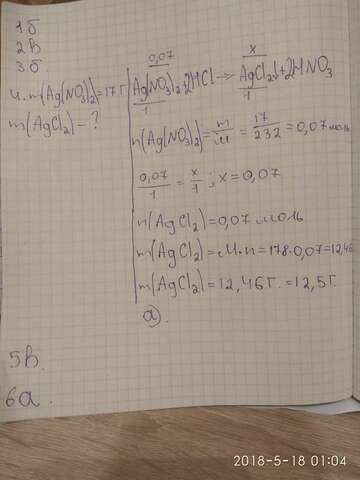 1.б
2 в
3.б
4. m(Ag(NO3)2)=17 г
m(AgCl2)-?
0,07 x
Ag(NO3)2+2HCl→AgCl2↓+2HNO3
1 1
n(Ag(NO3)2)=m/M=17/232=0,07 моль
0,07/1=x/1, x=0,07
n(AgCl2)=0,07 моль
m(AgCl2)=M·n=178·0,07=12,46
m(AgCl2)=12,46г.=12,5г.
а).
5в.
6а.
2018-5-18 01:04